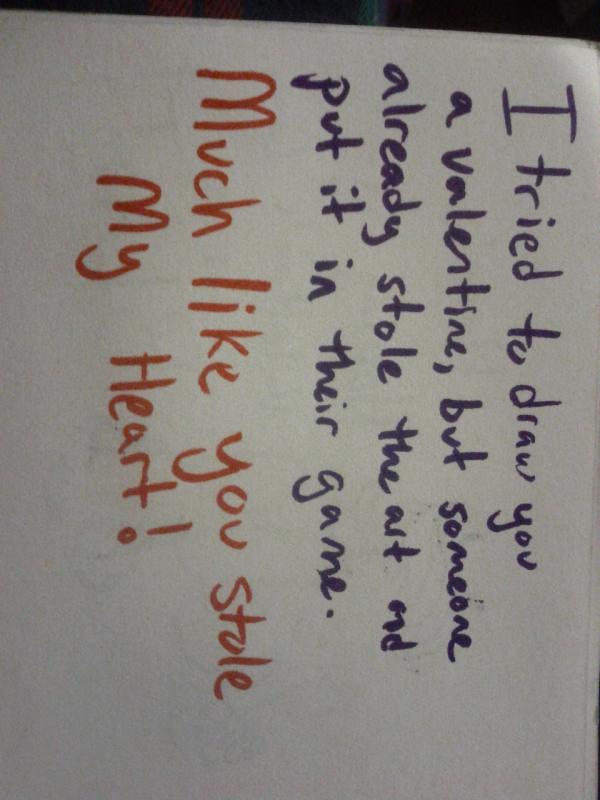 I tried to draw you
a valentine, but someone
already stole the art and
put it in their game.
Much like you stole
My Heart!